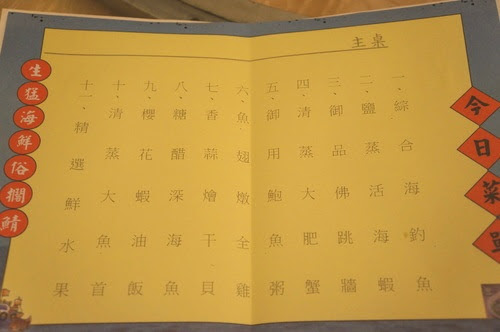 今日菜單
主桌
一、綜合海釣魚
二、鹽蒸活海蝦
三、御品佛跳牆
四、清蒸大肥蟹
五、御用鮑魚粥
六、魚翅燉全雞
七、香蒜燴干貝
八、糖醋深海魚
九、櫻花蝦油飯
十、清蒸大魚首
十一、精選鮮水果
生猛海鮮俗擱鯖